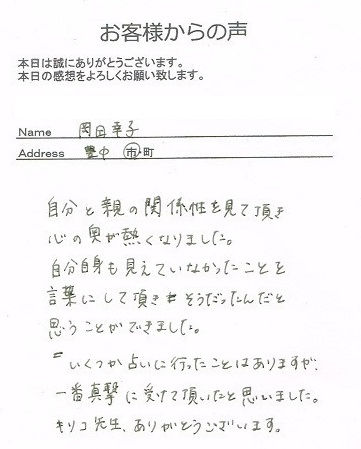 お客様からの声
本日は誠にありがとうございます。
本日の感想をよろしくお願い致します。
Name 岡田幸子
Address 豊中 市・町
自分と親の関係性を見て頂き
心の奥が熱くなりました。
自分自身も見えていなかったことを
言葉にして頂き そうだったんだと
思うことができました。
いくつか占いに行ったことはありますが、
一番真撃に受けて頂いたと思いました。
キリコ先生、ありがとうございます。